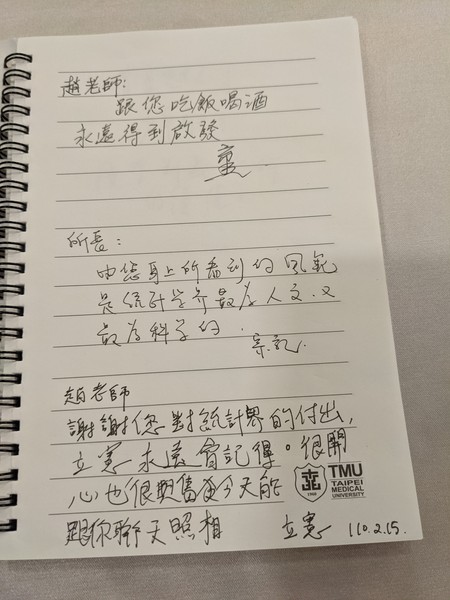 趙老師:
跟您吃飯喝酒
永遠得到啟發
所長:
由您身上所看到的風範
是統計學界最有人文、又
最有科學的.
趙老師
謝謝您對統計界的付出,
立憲永遠會記得。很開
心也很興奮今天能
跟你聊天照相
立憲 110.2.15.
TMU
TAIPEI
MEDICAL
UNIVERSITY
1960